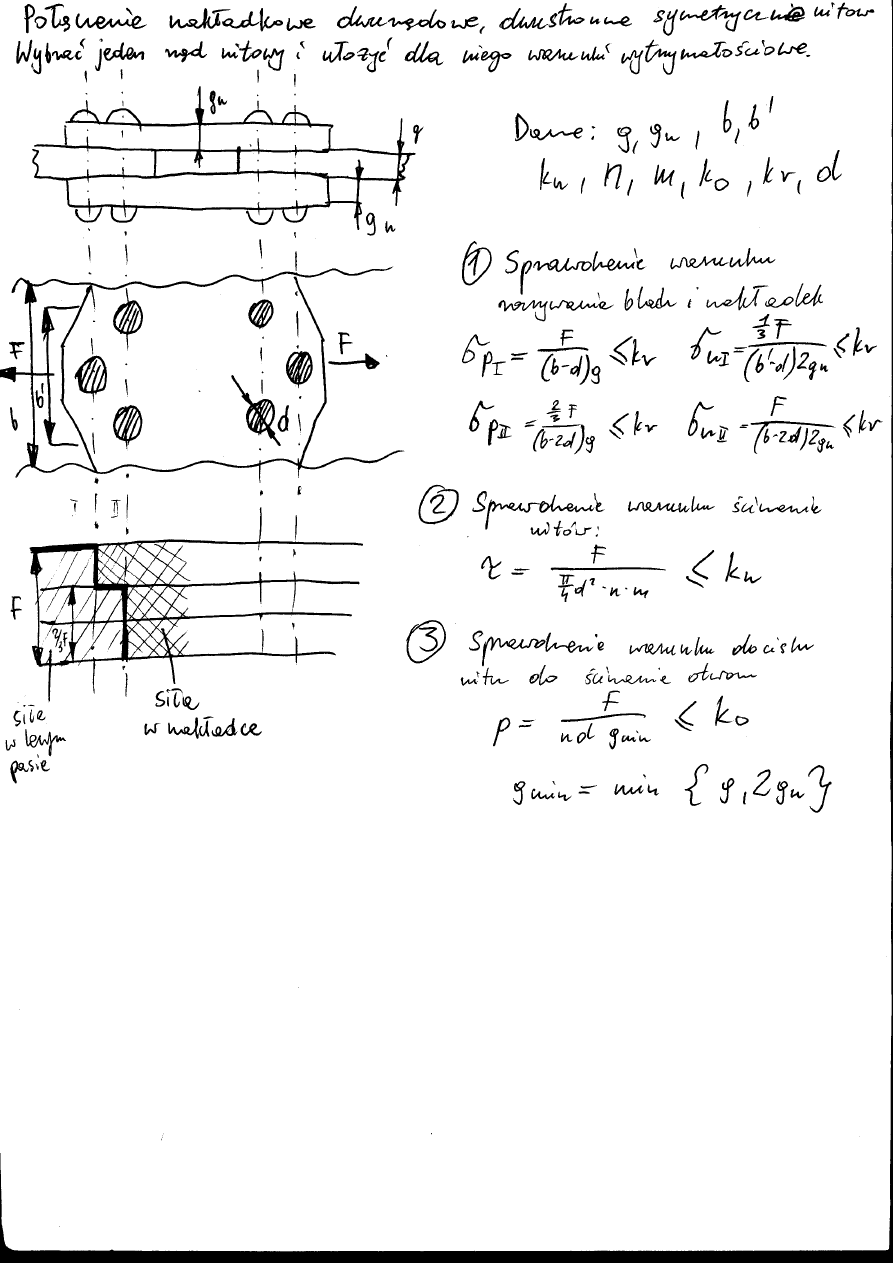 Połączenie nakładkowe dwurzędowe, dwustronne symetrycznie nitow
Wybrać jeden rząd nitowy i ułożyć dla niego warunki wytrzymałościowe.
gn
g
gn
Dane: g, gn, b, b'
kn, n, m, ko, kr, d
F
b
b'
F
d
I II
F
2/3F
siła
w lewym
pasie
siła
w nakładce
① Sprawdzenie warunku
rozrywania blach i nakładek
σpI = F/((b-d)g) ≤ kr   σnI = (1/3 F)/((b'-d)2gn) ≤ kr
σpII = (2/3 F)/((b-2d)g) ≤ kr   σnII = F/((b-2d)2gn) ≤ kr
② Sprawdzenie warunku ścinania
nitów:
τ = F/(π/4 d² · n · m) ≤ kn
③ Sprawdzenie warunku docisku
nitu do ścinanie otworu
p = F/(nd gmin) ≤ ko
gmin = min { g, 2gn }